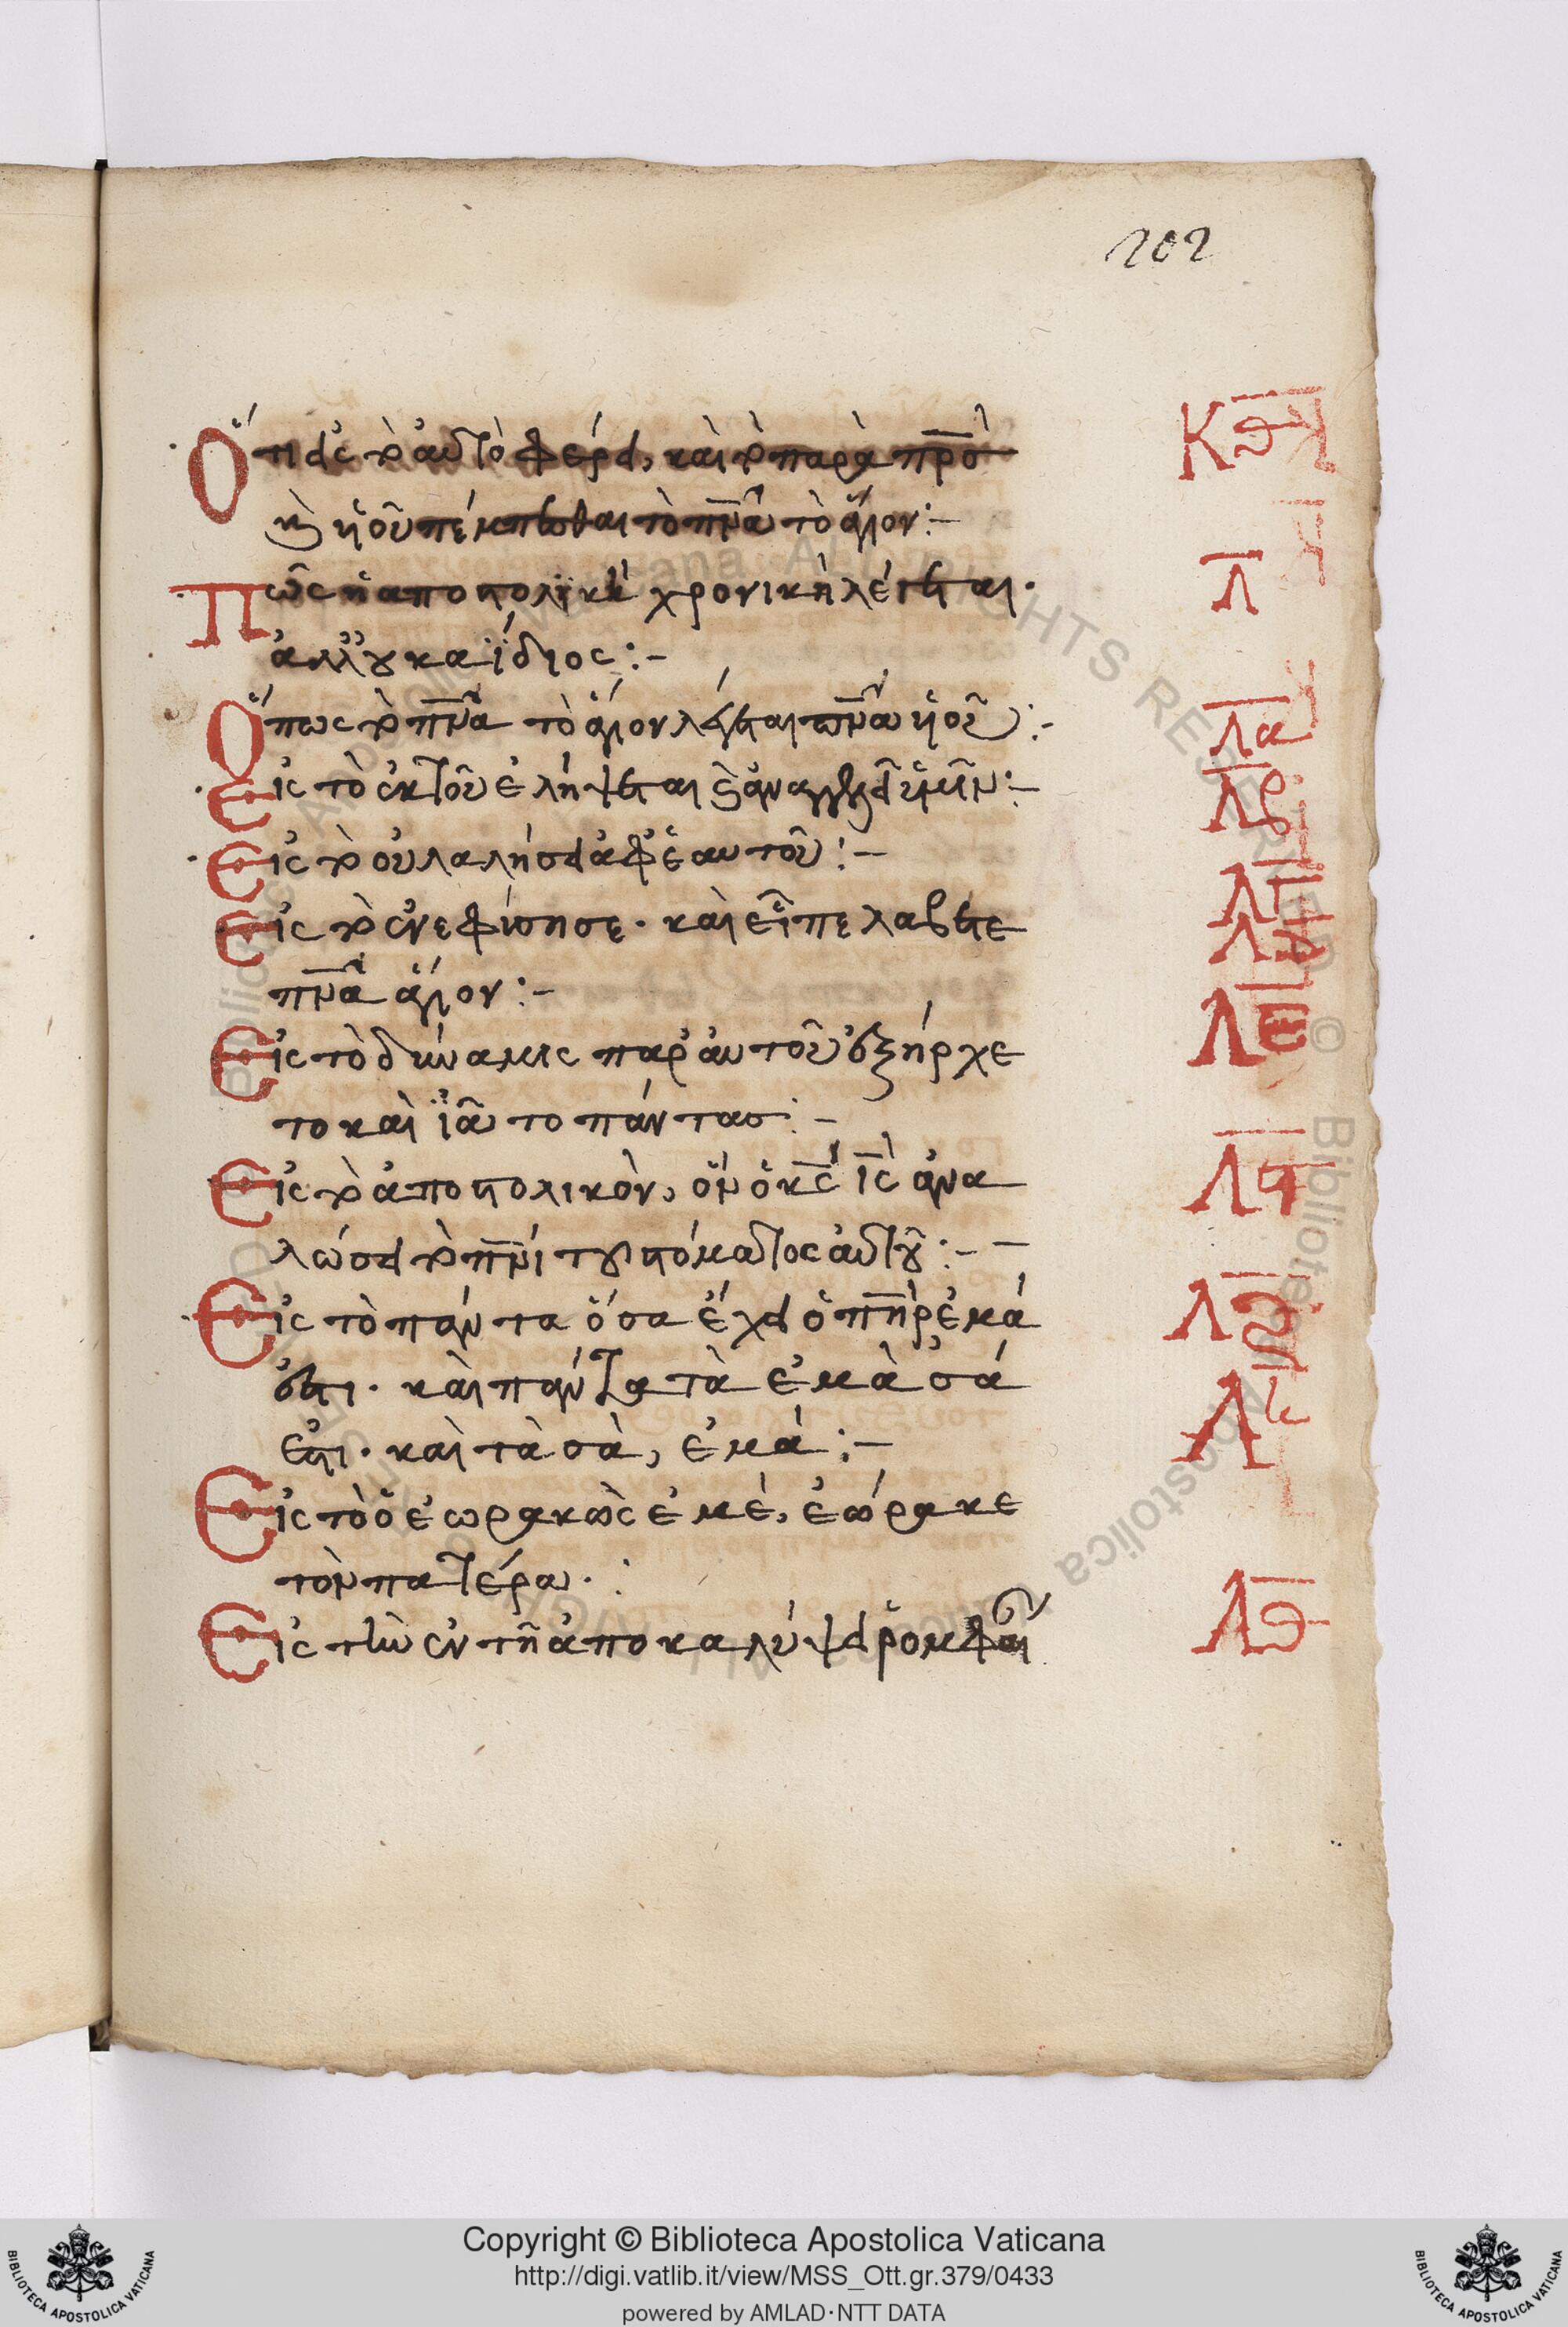 202
Ὅτι εἰς τὸ αὐτὸ φέρει, καὶ τὸ παρὰ πρσ
κῆ υἱοῦ πέμπεσθαι τὸ πνᾶ τὸ ἅγιον:– ΚΘ
Πῶς ἡ ἀποστολικὴ χρονικὴ λέγεται· Λ
ἀλλ' οὐκ ἀΐδιος:–
Ὅπως τὸ πνᾶ τὸ ἅγιον λέγεται πνᾶ υἱοῦ:– ΛΑ
Εἰς τὸ ἐκ τοῦ ἐμοῦ λήψεται καὶ ἀναγγελεῖ ὑμῖν:– ΛΒ
Εἰς τὸ οὐ λαλήσει ἀφ' ἑαυτοῦ:– ΛΓ
Εἰς τὸ ἐνεφύσησε· καὶ εἶπε λάβετε ΛΔ
πνᾶ ἅγιον:–
Εἰς τὸ δύναμις παρ' αὐτοῦ ἐξήρχε ΛΕ
το καὶ ἰᾶτο πάντας:–
Εἰς τὸ ἀποστολικὸν, ὃν ὁ κς ις ἀνα Λϛ
λώσει τῷ πνι τοῦ στόματος αὐτοῦ:–
Εἰς τὸ πάντα ὅσα ἔχει ὁ πηρ ἐμά ΛΖ
ἐστι· καὶ πάντα τὰ ἐμὰ σά ΛΗ
ἐστι· καὶ τὰ σὰ, ἐμά:–
Εἰς τὸ ὁ ἑωρακὼς ἐμέ, ἑώρακε
τὸν πατέρα·:
Εἰς τὴν ἐν τῇ ἀποκαλύψει ῥομφαίαν ΛΘ
Copyright © Biblioteca Apostolica Vaticana
http://digi.vatlib.it/view/MSS_Ott.gr.379/0433
powered by AMLAD·NTT DATA
BIBLIOTECA APOSTOLICA VATICANA
BIBLIOTECA APOSTOLICA VATICANA